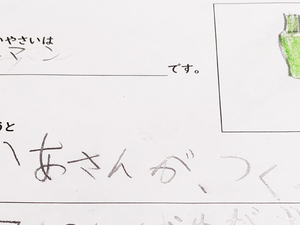 いやさいは
ーマン
です。
うと
いあさんが、つく